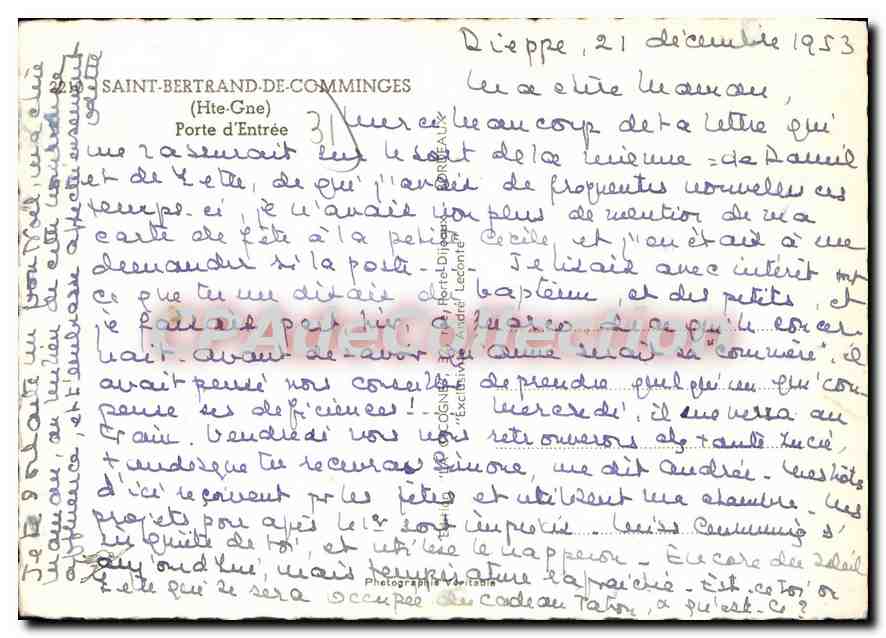 Dieppe, 21 décembre 1953
2218 SAINT-BERTRAND-DE-COMMINGES
(Hte-Gne)
Porte d'Entrée
Ma chère Maman,
31 Merci beaucoup de ta lettre qui
me rassurait sur le sort de la mienne = de Daniel
et de Zette, de qui j'avais de fréquentes nouvelles ces
temps-ci, je n'avais non plus de mention de ma
carte de fête à la petite Cécile, et j'en étais à me
demander si la poste - - - . Je lisais avec intérêt
ce que tu me disais du baptême, et des petits, et
je faisais part hier, à Marso, de ce qui le concer
nait - avant de savoir qu'Anne serait sa "commère", il
avait pensé nous conseiller de prendre quelqu'un qui com-
pense ses déficiences! - Mercredi, il me verra au
train. Vendredi nous nous retrouverons chez tante Lucie,
tandis que tu recevras Simone, me dit Andrée - Mes hôtes
d'ici reçoivent pr les fêtes et utilisent ma chambre - Mes
projets pour après le 1er sont imprécis - Miss Cummings s'
inquiète de toi, et utilise le napperon - Encore du soleil
aujourd'hui, mais température rafraîchie - Est-ce toi ou
Zette qui se sera occupée du cadeau Tabou, & qu'est-ce ?
Je te souhaite un bon Noël, ma chère
Maman, au milieu de cette nombreuse
affluence, et t'embrasse affectueusement
Édition "LA CIGOGNE", Porte-Dijeaux, BORDEAUX
"Exclusivité André Leconte"
Photographie Véritable
CPA de Collection